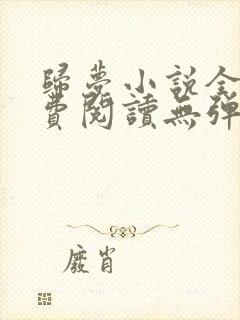 歸夢小說全
費閱讀無彈
廢肖